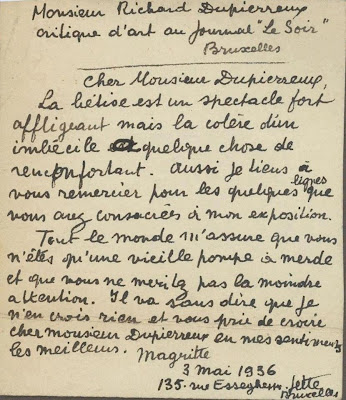 Monsieur Richard Dupierreux
critique d'art au Journal "Le Soir"
Bruxelles
Cher Monsieur Dupierreux,
La bêtise est un spectacle fort
affligeant mais la colère d'un
imbécile a quelque chose de
renconfortant. Aussi je tiens à
vous remercier pour les quelques lignes que
vous avez consacrées à mon exposition.
Tout le monde m'assure que vous
n'êtes qu'une vieille pompe à merde
et que vous ne méritez pas la moindre
attention. Il va sans dire que je
n'en crois rien et vous prie de croire
cher monsieur Dupierreux en mes sentiments
les meilleurs. Magritte
3 mai 1936
135. rue Esseghem. Jette
Bruxelles